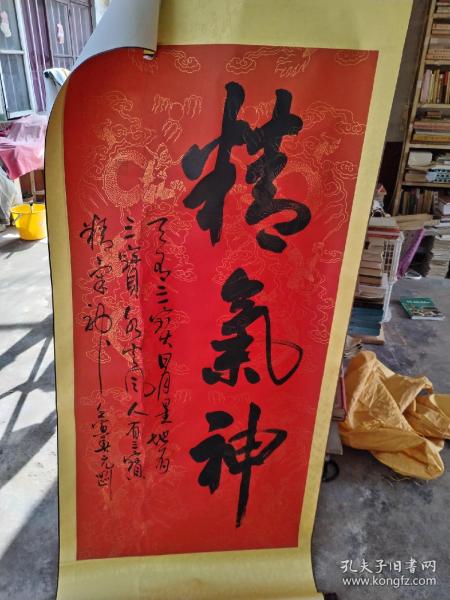 精氣神
天有三寶日月星地有
三寶水火風人有三寶
精氣神
孔夫子旧书网
www.kongfz.com